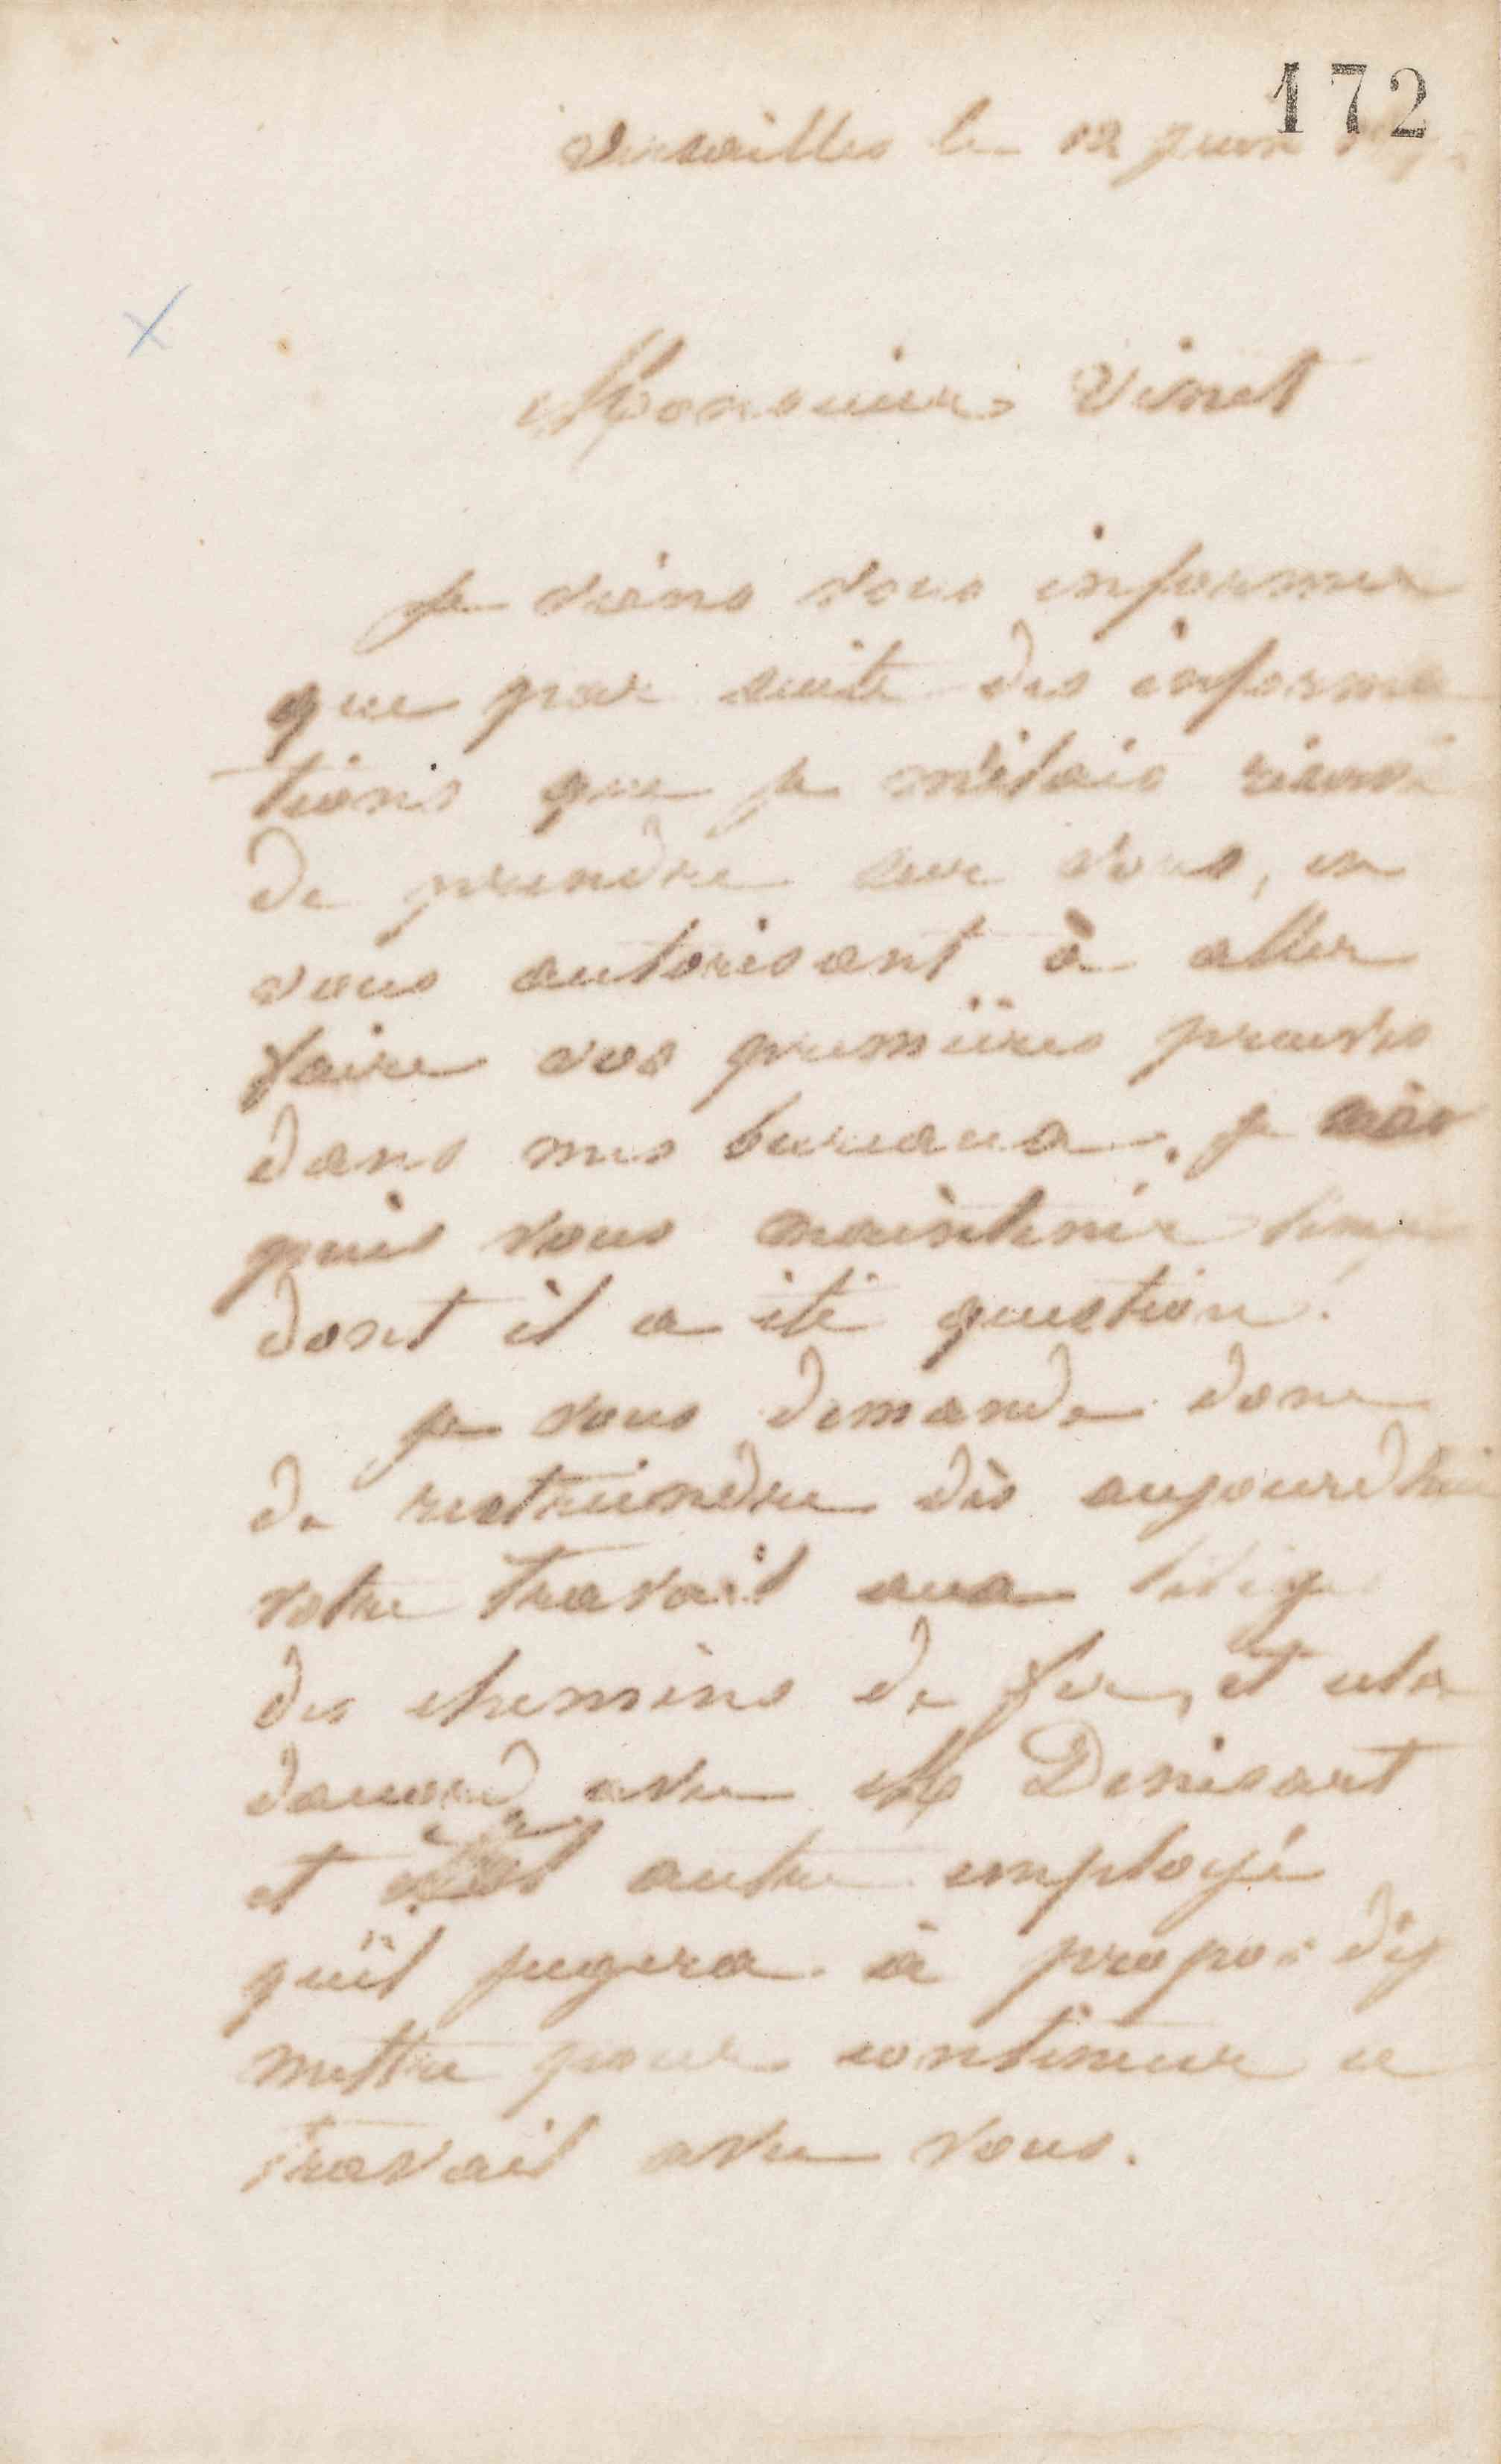 172
Versailles le 12 juin
Monsieur Vinet
Je viens vous informer
que par suite des informa
tions que je m'étais réservé
de prendre sur vous, en
vous autorisant à aller
faire vos premières preuves
dans mes bureaux, je
puis vous maintenir
dont il a été question.
Je vous demande donc
de restreindre dès aujourdhui
votre travail aux litiges
des chemins de fer, et cela
daccord avec M Denisart
et autre employé
qu'il jugera à propos d'y
mettre pour continuer ce
travail avec vous.